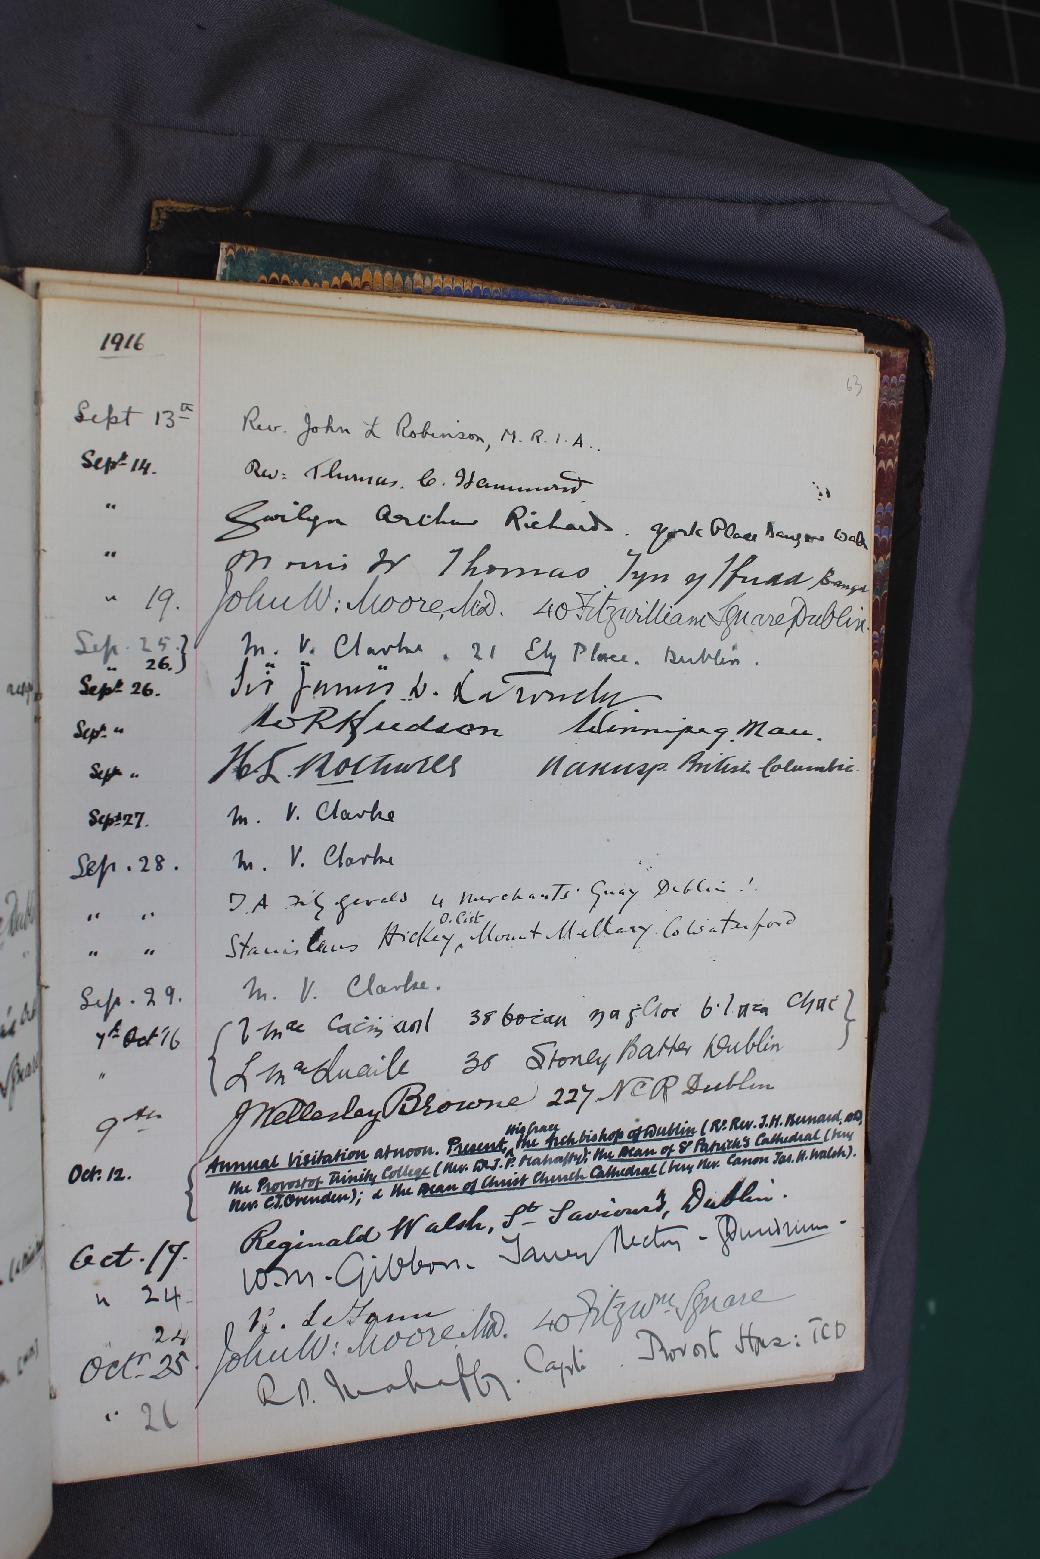 1916
63
Sept 13th Rev. John L Robinson, M.R.I.A..
Sept 14. Rev: Thomas. C. Hammond
" Gwilym Arthur Richards. York Place Bangor Wales
" Morris W Thomas Tyn y ffridd Bangor
" 19. John W: Moore, M.D. 40 Fitzwilliam Square, Dublin.
Sep. 25. } M. V. Clarke. 21 Ely Place. Dublin.
" 26. } " " "
Sept 26. Sir James D. La Touche
Sept " W R Hudson Winnipeg. Man.
Sept " Rothwell Nakusp British Columbia
Sept 27. M. V. Clarke
Sep. 28. M. V. Clarke
" " J. A Fitzgerald 4 Merchants' Quay Dublin
" " Stanislaus Hickey, O. Cist. Mount Mellary Co Waterford
Sep. 29. M. V. Clarke.
7th Oct 16 { 38
" L MacQuaile 38 Stoney Batter Dublin }
9th J Wellesley Browne 227 N C R Dublin
Oct. 12. { Annual Visitation at noon. Present, His Grace the Archbishop of Dublin (Rt. Rev. J.H. Bernard, D.D.),
the Provost of Trinity College (Rev. Dr. J. P. Mahaffy); the Dean of St Patrick's Cathedral (Very
Rev. C.T. Ovenden); & the Dean of Christ Church Cathedral (Very Rev. Canon Jas. H. Walsh).
Oct. 17. Reginald Walsh, St Saviour's, Dublin.
" 24 W.M. Gibbon. Taney Rectory - Dundrum.
24 Le Fanu
Octr 25. John W: Moore, M.D. 40 Fitzwm Square
" 26 R.P. Mahaffy. Capt. Provost House: TCD